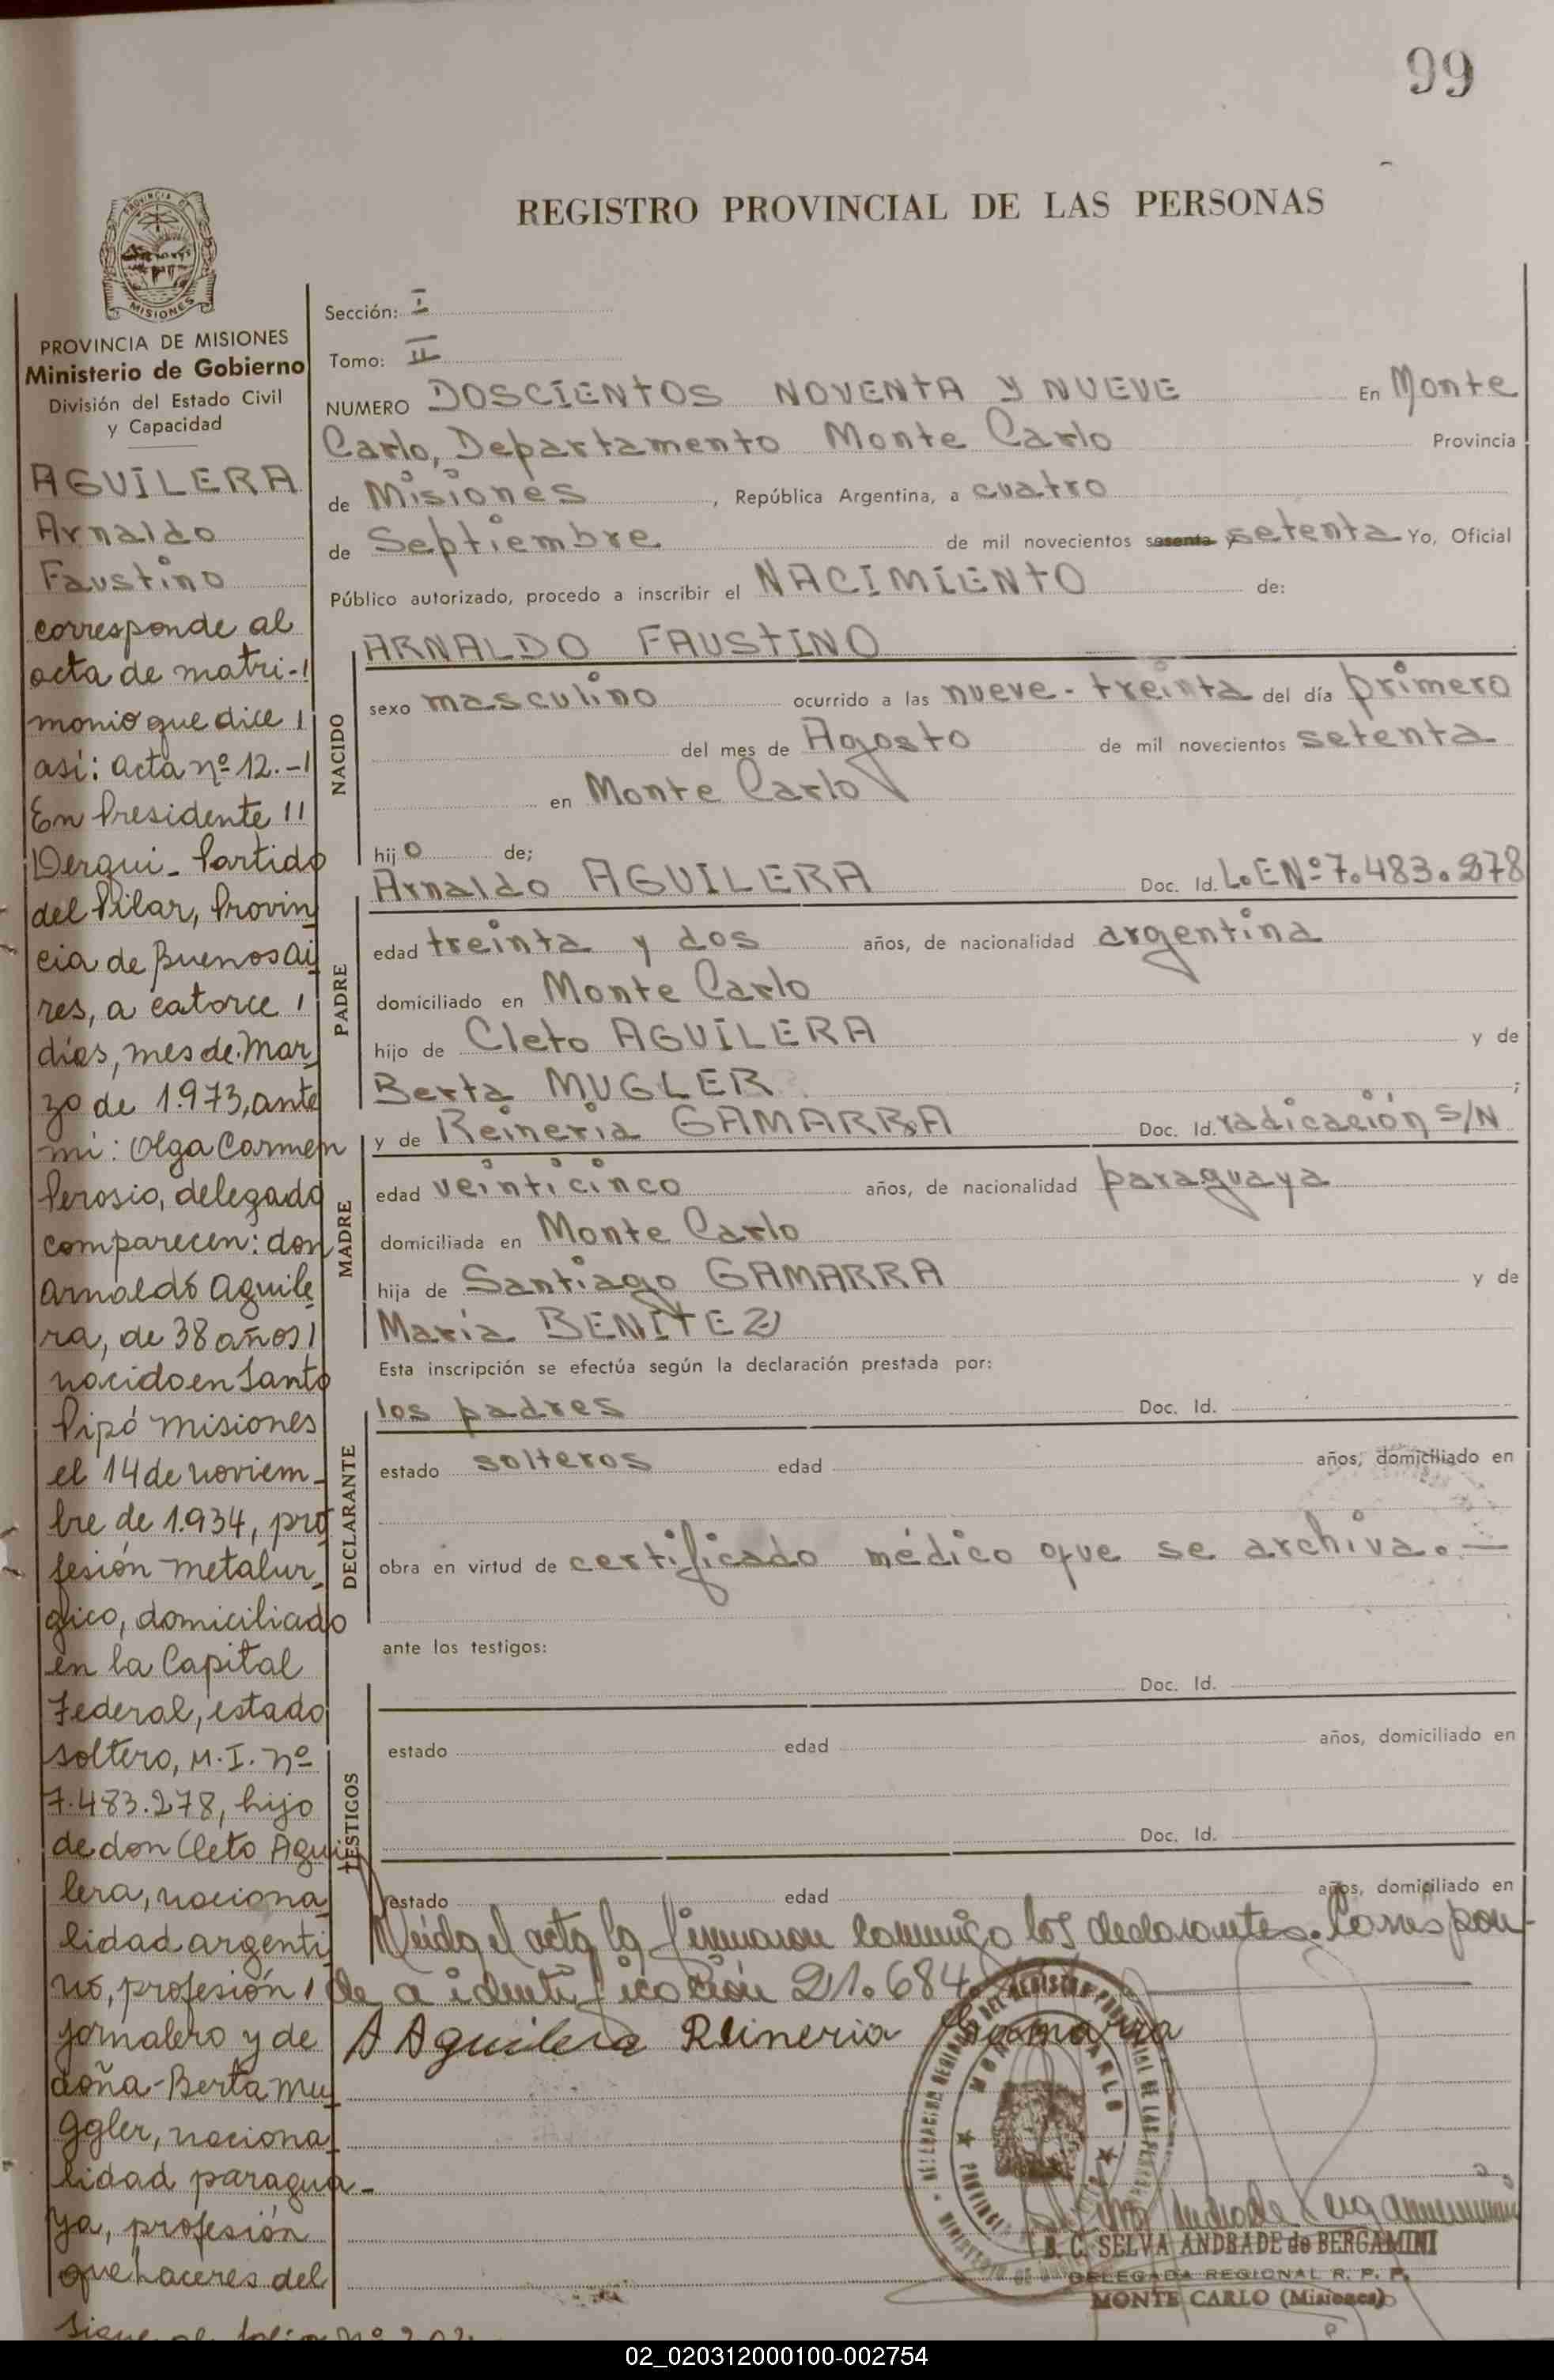 99
REGISTRO PROVINCIAL DE LAS PERSONAS
PROVINCIA DE
MISIONES
PROVINCIA DE MISIONES
Ministerio de Gobierno
División del Estado Civil
y Capacidad
AGUILERA
Arnaldo
Faustino
corresponde al
acta de matri-
monio que dice
así: acta nº 12.-
En Presidente
Derqui- Partido
del Pilar, Provin
cia de Buenos Ai
res, a catorce
días, mes de Mar
zo de 1.973, ante
mi: Olga Carmen
Perosio, delegado
comparecen: don
Arnaldo Aguile
ra, de 38 años
nacido en Santo
Pipó Misiones
el 14 de noviem-
bre de 1.934, pro
fesión metalur
gico, domiciliado
en la Capital
Federal, estado
soltero, M.I. nº
7.483.278, hijo
de don Cleto Agui
lera, naciona
lidad argenti
no, profesión
jornalero y de
doña-Berta Mu
ggler, naciona
lidad paragua-
ya, profesión
quehaceres del
Sigue al folio Nº
Sección: I
Tomo: II
NUMERO DOSCIENTOS NOVENTA Y NUEVE En Monte
Carlo, Departamento Monte Carlo Provincia
de Misiones, República Argentina, a cuatro
de Septiembre de mil novecientos sesenta y setenta Yo, Oficial
Público autorizado, procedo a inscribir el NACIMIENTO de:
NACIDO
ARNALDO FAUSTINO
sexo masculino ocurrido a las nueve-treinta del día primero
del mes de Agosto de mil novecientos setenta
en Monte Carlo
hijo de;
PADRE
Arnaldo AGUILERA Doc. Id. L.E Nº 7.483.278
edad treinta y dos años, de nacionalidad argentina
domiciliado en Monte Carlo
hijo de Cleto AGUILERA y de
Berta MUGLER ;
MADRE
y de Reineria GAMARRA Doc. Id. radicación S/N
edad veinticinco años, de nacionalidad paraguaya
domiciliada en Monte Carlo
hija de Santiago GAMARRA y de
María BENITEZ
Esta inscripción se efectúa según la declaración prestada por:
DECLARANTE
los padres Doc. Id.
estado solteros edad años, domiciliado en
obra en virtud de certificado médico que se archiva.—
ante los testigos:
TESTIGOS
Doc. Id.
estado edad años, domiciliado en
Doc. Id.
estado edad años, domiciliado en
Leída el acta la firmaron conmigo los declarantes. Correspon-
de a identificación 21.684
A Aguilera Reineria Gamarra
MONTE CARLO
B. C. SELVA ANDRADE de BERGAMINI
DELEGADA REGIONAL R. P. P.
MONTE CARLO (Misiones)
02_020312000100-002754